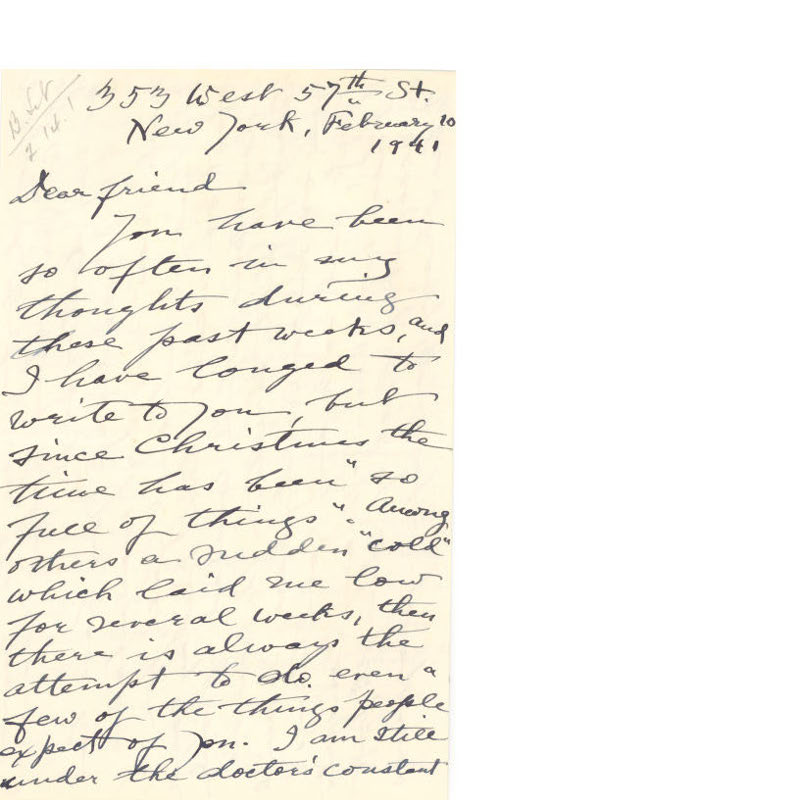 353 West 57th St.
New York, February 10
1941
Dear friend
You have been
so often in my
thoughts during
these past weeks, and
I have longed to
write to you, but
since Christmas the
time has been "so
full of things". Among
others a sudden "cold"
which laid me low
for several weeks, then
there is always the
attempt to do even a
few of the things people
expect of you. I am still
under the doctor's constant